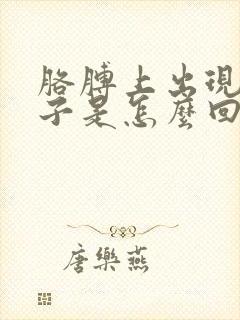 胳膊上出現
子是怎麼回
唐樂燕